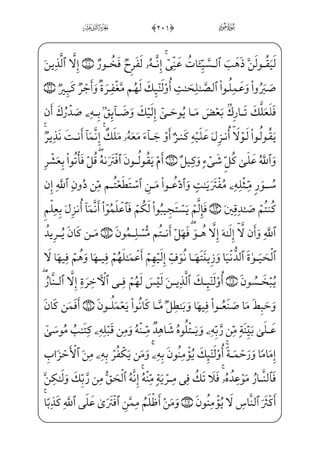 ﴿٢٠١﴾
لَيَقُولَنَّ ذَهَبَ ٱلسَّيِّـَٔاتُ عَنِّىٓ ۚ إِنَّهُۥ لَفَرِحٌ فَخُورٌ ۝١٠ إِلَّا ٱلَّذِينَ
صَبَرُوا۟ وَعَمِلُوا۟ ٱلصَّـٰلِحَـٰتِ أُو۟لَـٰٓئِكَ لَهُم مَّغْفِرَةٌ وَأَجْرٌ كَبِيرٌ ۝١١
فَلَعَلَّكَ تَارِكٌۢ بَعْضَ مَا يُوحَىٰٓ إِلَيْكَ وَضَآئِقٌۢ بِهِۦ صَدْرُكَ أَن
يَقُولُوا۟ لَوْلَآ أُنزِلَ عَلَيْهِ كَنزٌ أَوْ جَآءَ مَعَهُۥ مَلَكٌ ۚ إِنَّمَآ أَنتَ نَذِيرٌ ۚ
وَٱللَّهُ عَلَىٰ كُلِّ شَىْءٍ وَكِيلٌ ۝١٢ أَمْ يَقُولُونَ ٱفْتَرَىٰهُ ۖ قُلْ فَأْتُوا۟ بِعَشْرِ
سُوَرٍ مِّثْلِهِۦ مُفْتَرَيَـٰتٍ وَٱدْعُوا۟ مَنِ ٱسْتَطَعْتُم مِّن دُونِ ٱللَّهِ إِن
كُنتُمْ صَـٰدِقِينَ ۝١٣ فَإِلَّمْ يَسْتَجِيبُوا۟ لَكُمْ فَٱعْلَمُوٓا۟ أَنَّمَآ أُنزِلَ بِعِلْمِ
ٱللَّهِ وَأَن لَّآ إِلَـٰهَ إِلَّا هُوَ ۖ فَهَلْ أَنتُم مُّسْلِمُونَ ۝١٤ مَن كَانَ يُرِيدُ
ٱلْحَيَوٰةَ ٱلدُّنْيَا وَزِينَتَهَا نُوَفِّ إِلَيْهِمْ أَعْمَـٰلَهُمْ فِيهَا وَهُمْ فِيهَا لَا
يُبْخَسُونَ ۝١٥ أُو۟لَـٰٓئِكَ ٱلَّذِينَ لَيْسَ لَهُمْ فِى ٱلْـَٔاخِرَةِ إِلَّا ٱلنَّارُ ۖ
وَحَبِطَ مَا صَنَعُوا۟ فِيهَا وَبَـٰطِلٌ مَّا كَانُوا۟ يَعْمَلُونَ ۝١٦ أَفَمَن كَانَ
عَلَىٰ بَيِّنَةٍ مِّن رَّبِّهِۦ وَيَتْلُوهُ شَاهِدٌ مِّنْهُ وَمِن قَبْلِهِۦ كِتَـٰبُ مُوسَىٰٓ
إِمَامًا وَرَحْمَةً ۚ أُو۟لَـٰٓئِكَ يُؤْمِنُونَ بِهِۦ ۚ وَمَن يَكْفُرْ بِهِۦ مِنَ ٱلْأَحْزَابِ
فَٱلنَّارُ مَوْعِدُهُۥ ۚ فَلَا تَكُ فِى مِرْيَةٍ مِّنْهُ ۚ إِنَّهُ ٱلْحَقُّ مِن رَّبِّكَ وَلَـٰكِنَّ
أَكْثَرَ ٱلنَّاسِ لَا يُؤْمِنُونَ ۝١٧ وَمَنْ أَظْلَمُ مِمَّنِ ٱفْتَرَىٰ عَلَى ٱللَّهِ كَذِبًا ۚ